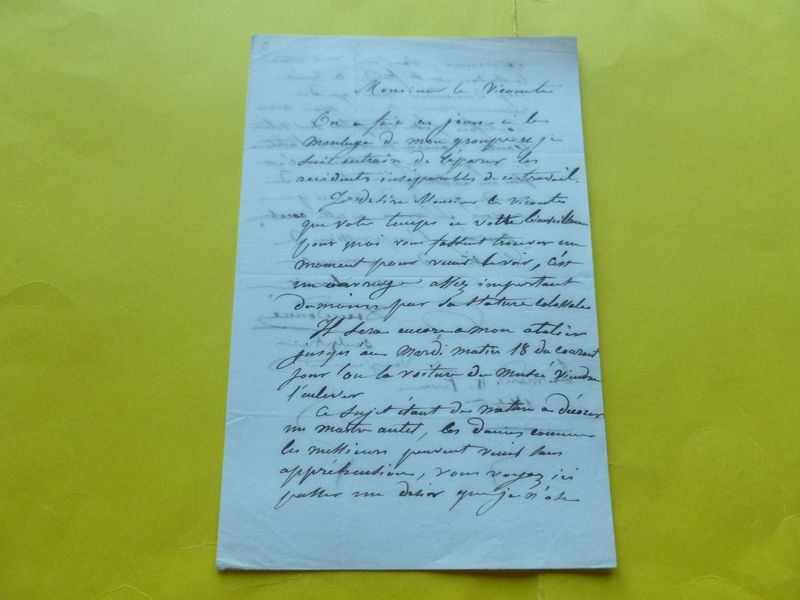 Monsieur le Vicomte
On a fait ces jours-ci le
moulage de mon groupe et je
suis entrain de réparer les
accidents inséparables de ce travail.
Je désire Monsieur le Vicomte
que votre temps et votre bienveillance
pour moi vous fassent trouver un
moment pour venir le voir, c'est
un ouvrage assez important
du moins par sa stature colossale
Il sera encore a mon atelier
jusqu'au Mardi matin 18 du courant
jour l'on la voiture du Musée viendra
l'enlever
Ce sujet étant de nature a décorer
un maitre autel, les dames comme
les messieurs peuvent venir sans
appréhention, vous voyez ici
passer un désir que je n'ose